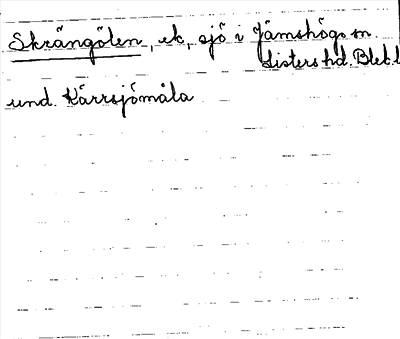 Skrängölen, ek, sjö i Jämshögs sn.
Listers hd. Blek.l
und. Kärrsjömåla